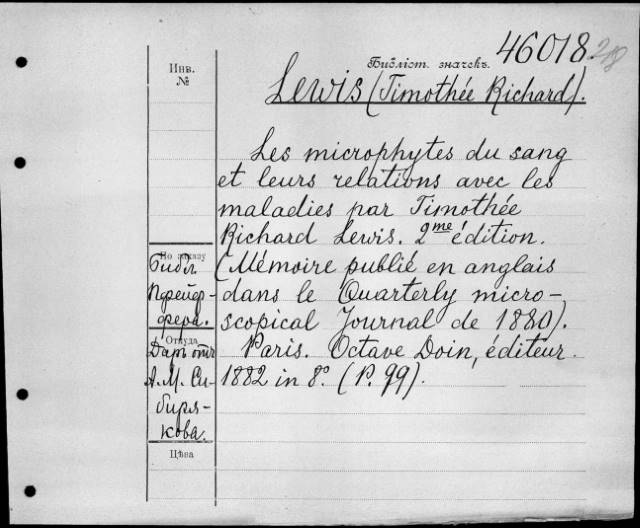 46018
28
Библіот. значекъ.
Инв.
№
Lewis (Timothée Richard).
Les microphytes du sang
et leurs relations avec les
maladies par Timothée
Richard Lewis. 2me édition.
(Mémoire publié en anglais
dans le Quarterly micro-
scopical Journal de 1880).
Paris. Octave Doin, éditeur.
1882 in 8°. (P. 99).
По заказу
Библ.
Пфейф-
фера.
Откуда
Даръ отъ
А. М. Си-
биря-
кова.
Цѣна